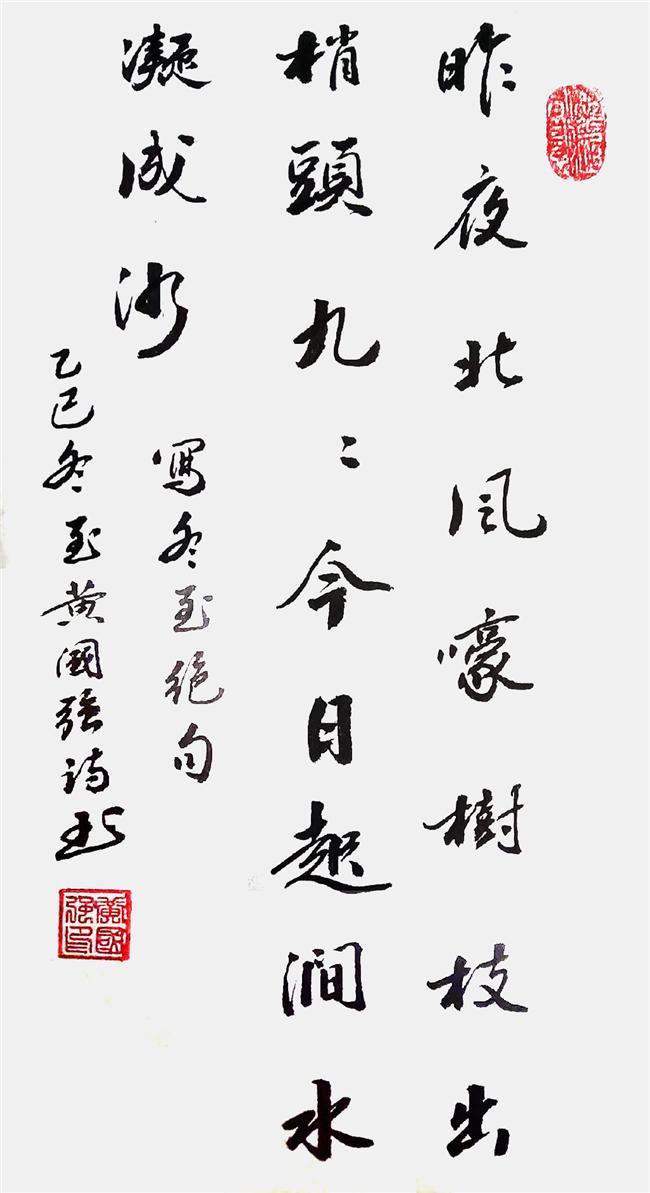 昨夜北风嚎樹枝出
梢頭九〻今日起澗水
凝成冰
寫冬至絶句
乙巳冬至黄國强詩书
黄國强印